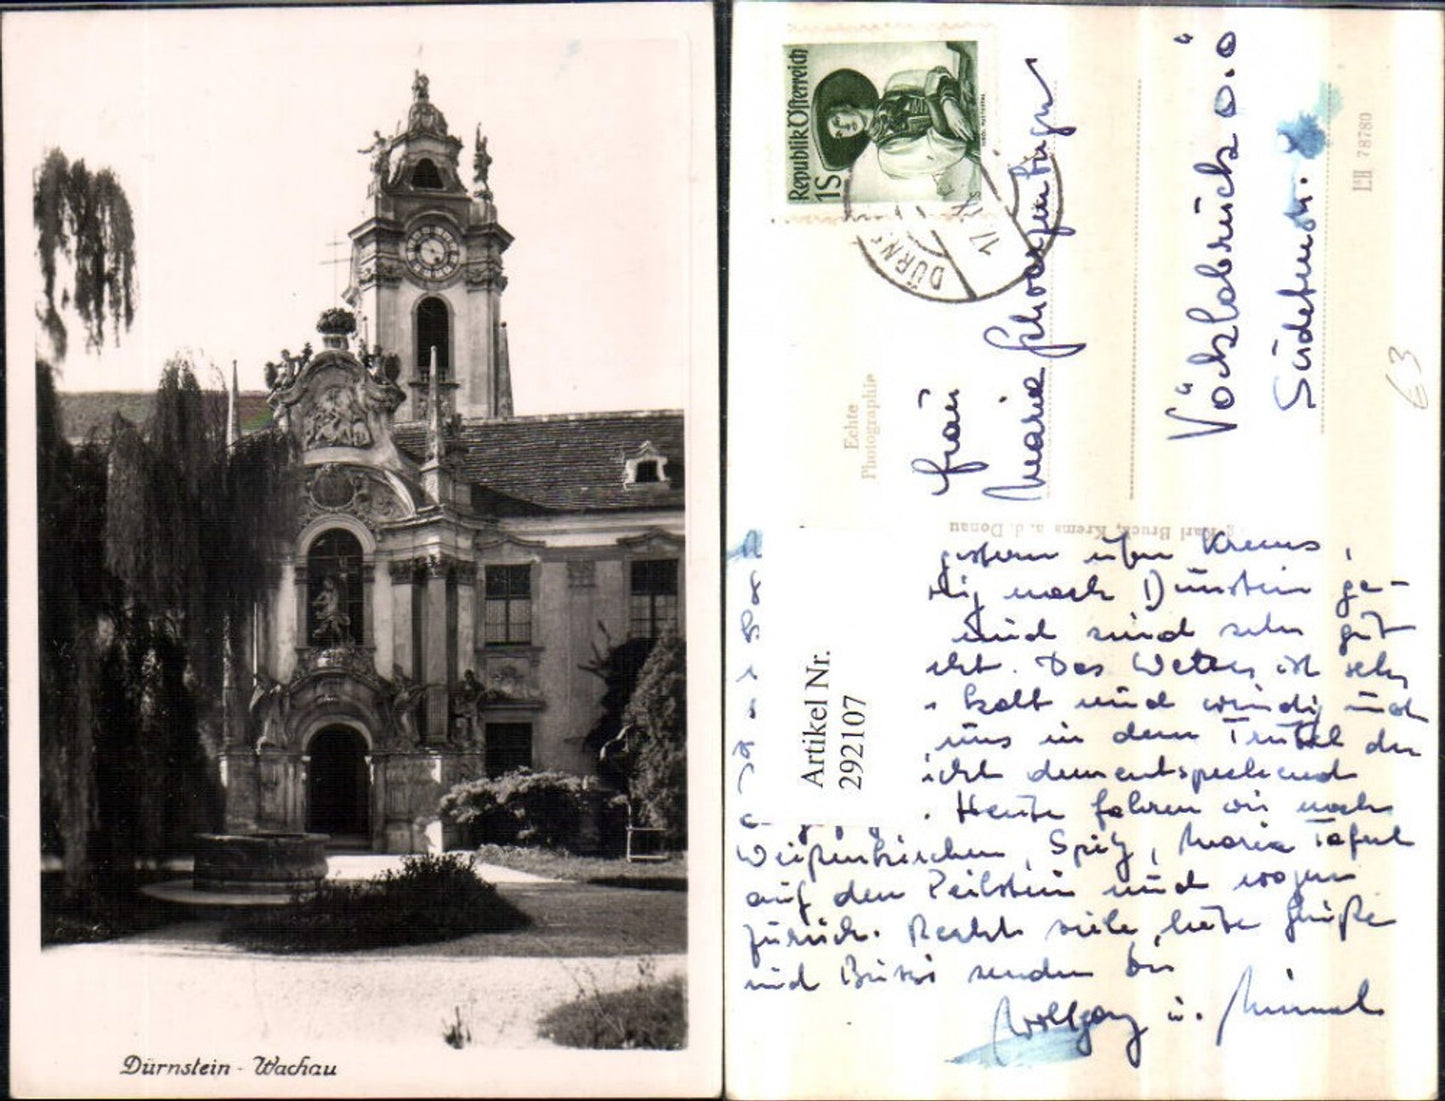 Dürnstein - Wachau
Republik Österreich
1S
DÜRNS
17. IX.
Echte
Photographie
Karl Bruck, Krems a. d. Donau
78780
63
Frau
Maria
Vöcklabruck O.Ö
Artikel Nr.
292107
gestern über Krems,
nach Dürnstein ge-
und sind sehr gut
Das Wetter ist sehr
kalt und windig und
uns in dem Trubel der
dementsprechend
. Heute fahren wir nach
Weißenkirchen, Spitz, Maria Taferl
auf den und morgen
zurück. Recht viele, liebe Grüße
und Bussi senden Dir
Wolfgang u.